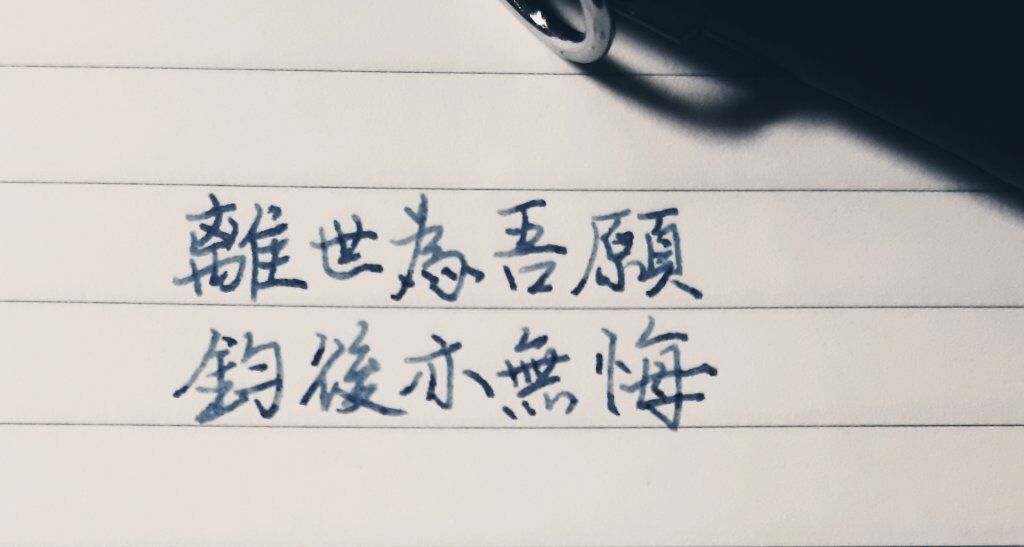 離世為吾願
鈞後亦無悔